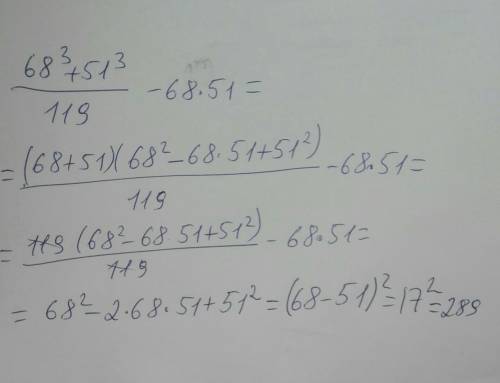 68³+51³
119
-68·51=
=(68+51)(68²-68·51+51²)
119
-68·51=
=119(68²-68 51+51²)
119
-68·51=
=68²-2·68·51+51²=(68-51)²=17²=289